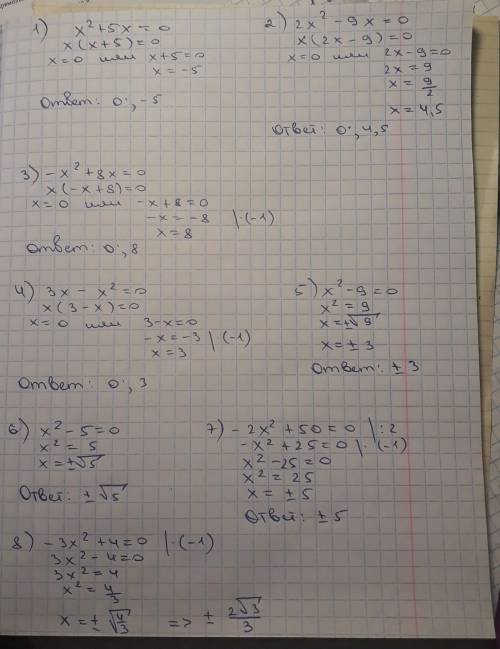 1) x² + 5x = 0
x(x+5)=0
x=0 или x+5=0
x=-5
Ответ: 0; -5
2) 2x² - 9x = 0
x(2x-9)=0
x=0 или 2x-9=0
2x=9
x=9/2
x=4,5
Ответ: 0; 4,5
3) -x² + 8x = 0
x(-x+8)=0
x=0 или -x+8=0
-x=-8 |·(-1)
x=8
Ответ: 0; 8
4) 3x - x² = 0
x(3-x)=0
x=0 или 3-x=0
-x=-3 |·(-1)
x=3
Ответ: 0; 3
5) x² - 9 = 0
x² = 9
x=±√9
x=±3
Ответ: ±3
6) x² - 5 = 0
x² = 5
x=±√5
Ответ: ±√5
7) -2x² + 50 = 0 |:2
-x² + 25 = 0 |·(-1)
x² - 25 = 0
x² = 25
x = ±5
Ответ: ±5
8) -3x² + 4 = 0 |·(-1)
3x² - 4 = 0
3x² = 4
x² = 4/3
x = ±√(4/3) => ± 2√3/3